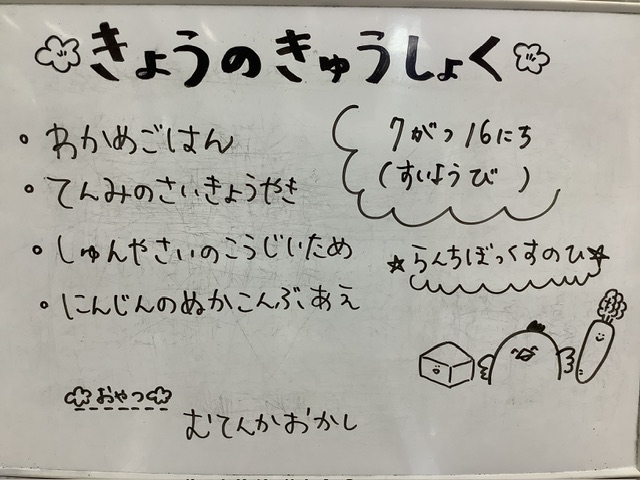 きょうのきゅうしょく
・わかめごはん
・てんみのさいきょうやき
・しゅんやさいのこうじいため
・にんじんのぬかこんぶあえ
7がつ16にち
(すいようび)
☆らんちぼっくすのひ☆
おやつ
むてんかおかし